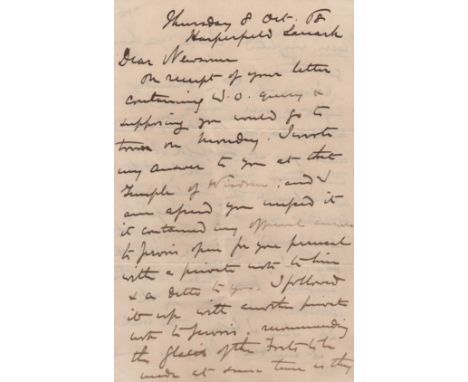 Thursday 8 Oct. 68
Harperfield Lanark
Dear Newsome
On receipt of your letter
containing W.O. query &
supposing you would go to
town on Monday. I wrote
my answer to you at that
Temple of Wisdom. and I
am afraid you missed it
it contained my official answer
to Jervois open for your perusal
with a private note to him
& a ditto to you. I followed
it up with another private
note to Jervois. recommending
the Glacis of the Forts to be
made at same time as they